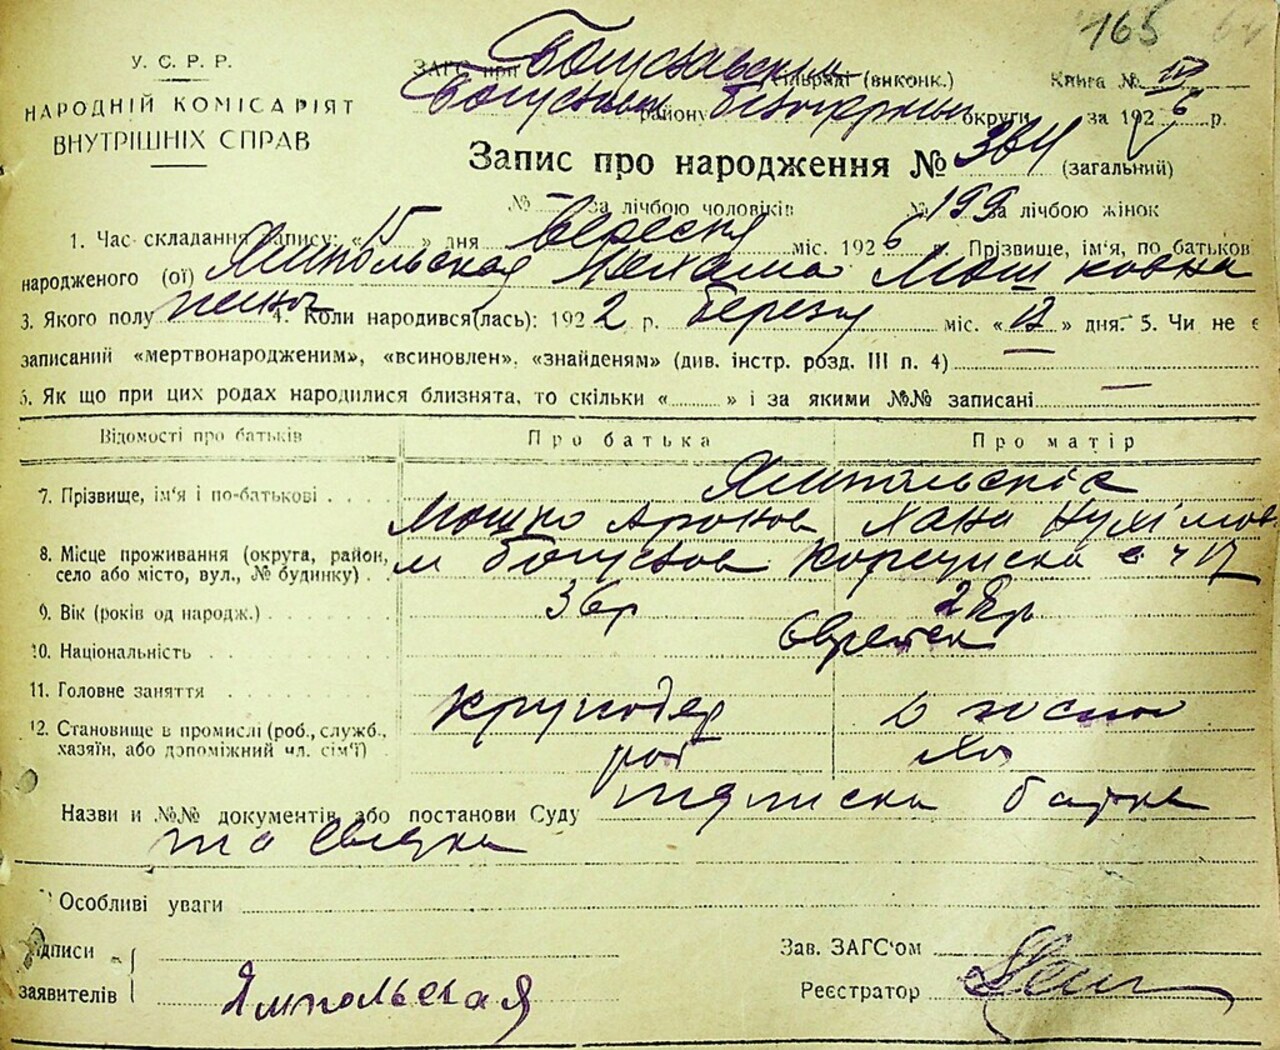 165
У. С. Р. Р.
НАРОДНІЙ КОМІСАРІЯТ
ВНУТРІШНІХ СПРАВ
ЗАГС при Богуславським сільраді (виконк.) Книга №
Богуслав району Білоцерків округи за 1926 р.
Запис про народження № 364 (загальний)
№ — за лічбою чоловіків № 199 за лічбою жінок
1. Час складання запису: «15» дня Вересня міс. 1926 р. Прізвище, ім'я, по батьков
народженого (ої) Ямпольская Мошковна
3. Якого полу жіноч 4. Коли народився(лась): 1922 р. березня міс. «12» дня. 5. Чи не є
записаний «мертвонародженим», «всиновлен», «знайденям» (див. інстр. розд. III п. 4) —
6. Як що при цих родах народилися близнята, то скільки « » і за якими №№ записані —
Відомості про батьків Про батька Про матір
7. Прізвище, ім'я і по-батькові Ямпольскіе
Мошко Аронов Хана Нухімов
8. Місце проживання (округа, район, село або місто, вул., № будинку) м Богуслав Корсунска
9. Вік (років од народж.) 36р 28р
10. Національність Євреіск
11. Головне заняття
12. Становище в промислі (роб., служб., хазяїн, або допоміжний чл. сім'ї) роб
Назви и №№ документів або постанови Суду підписка батька
та свідка
Особливі уваги
Підписи заявителів Ямпольская
Зав. ЗАГС'ом
Реєстратор